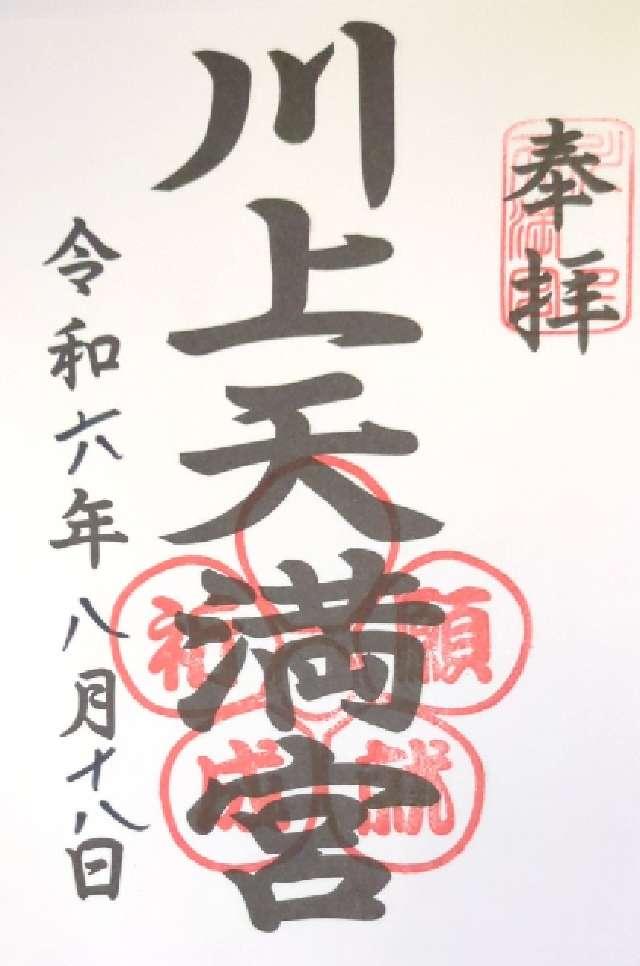 奉拝
川上天満宮
令和六年八月十八日
祈願
成就